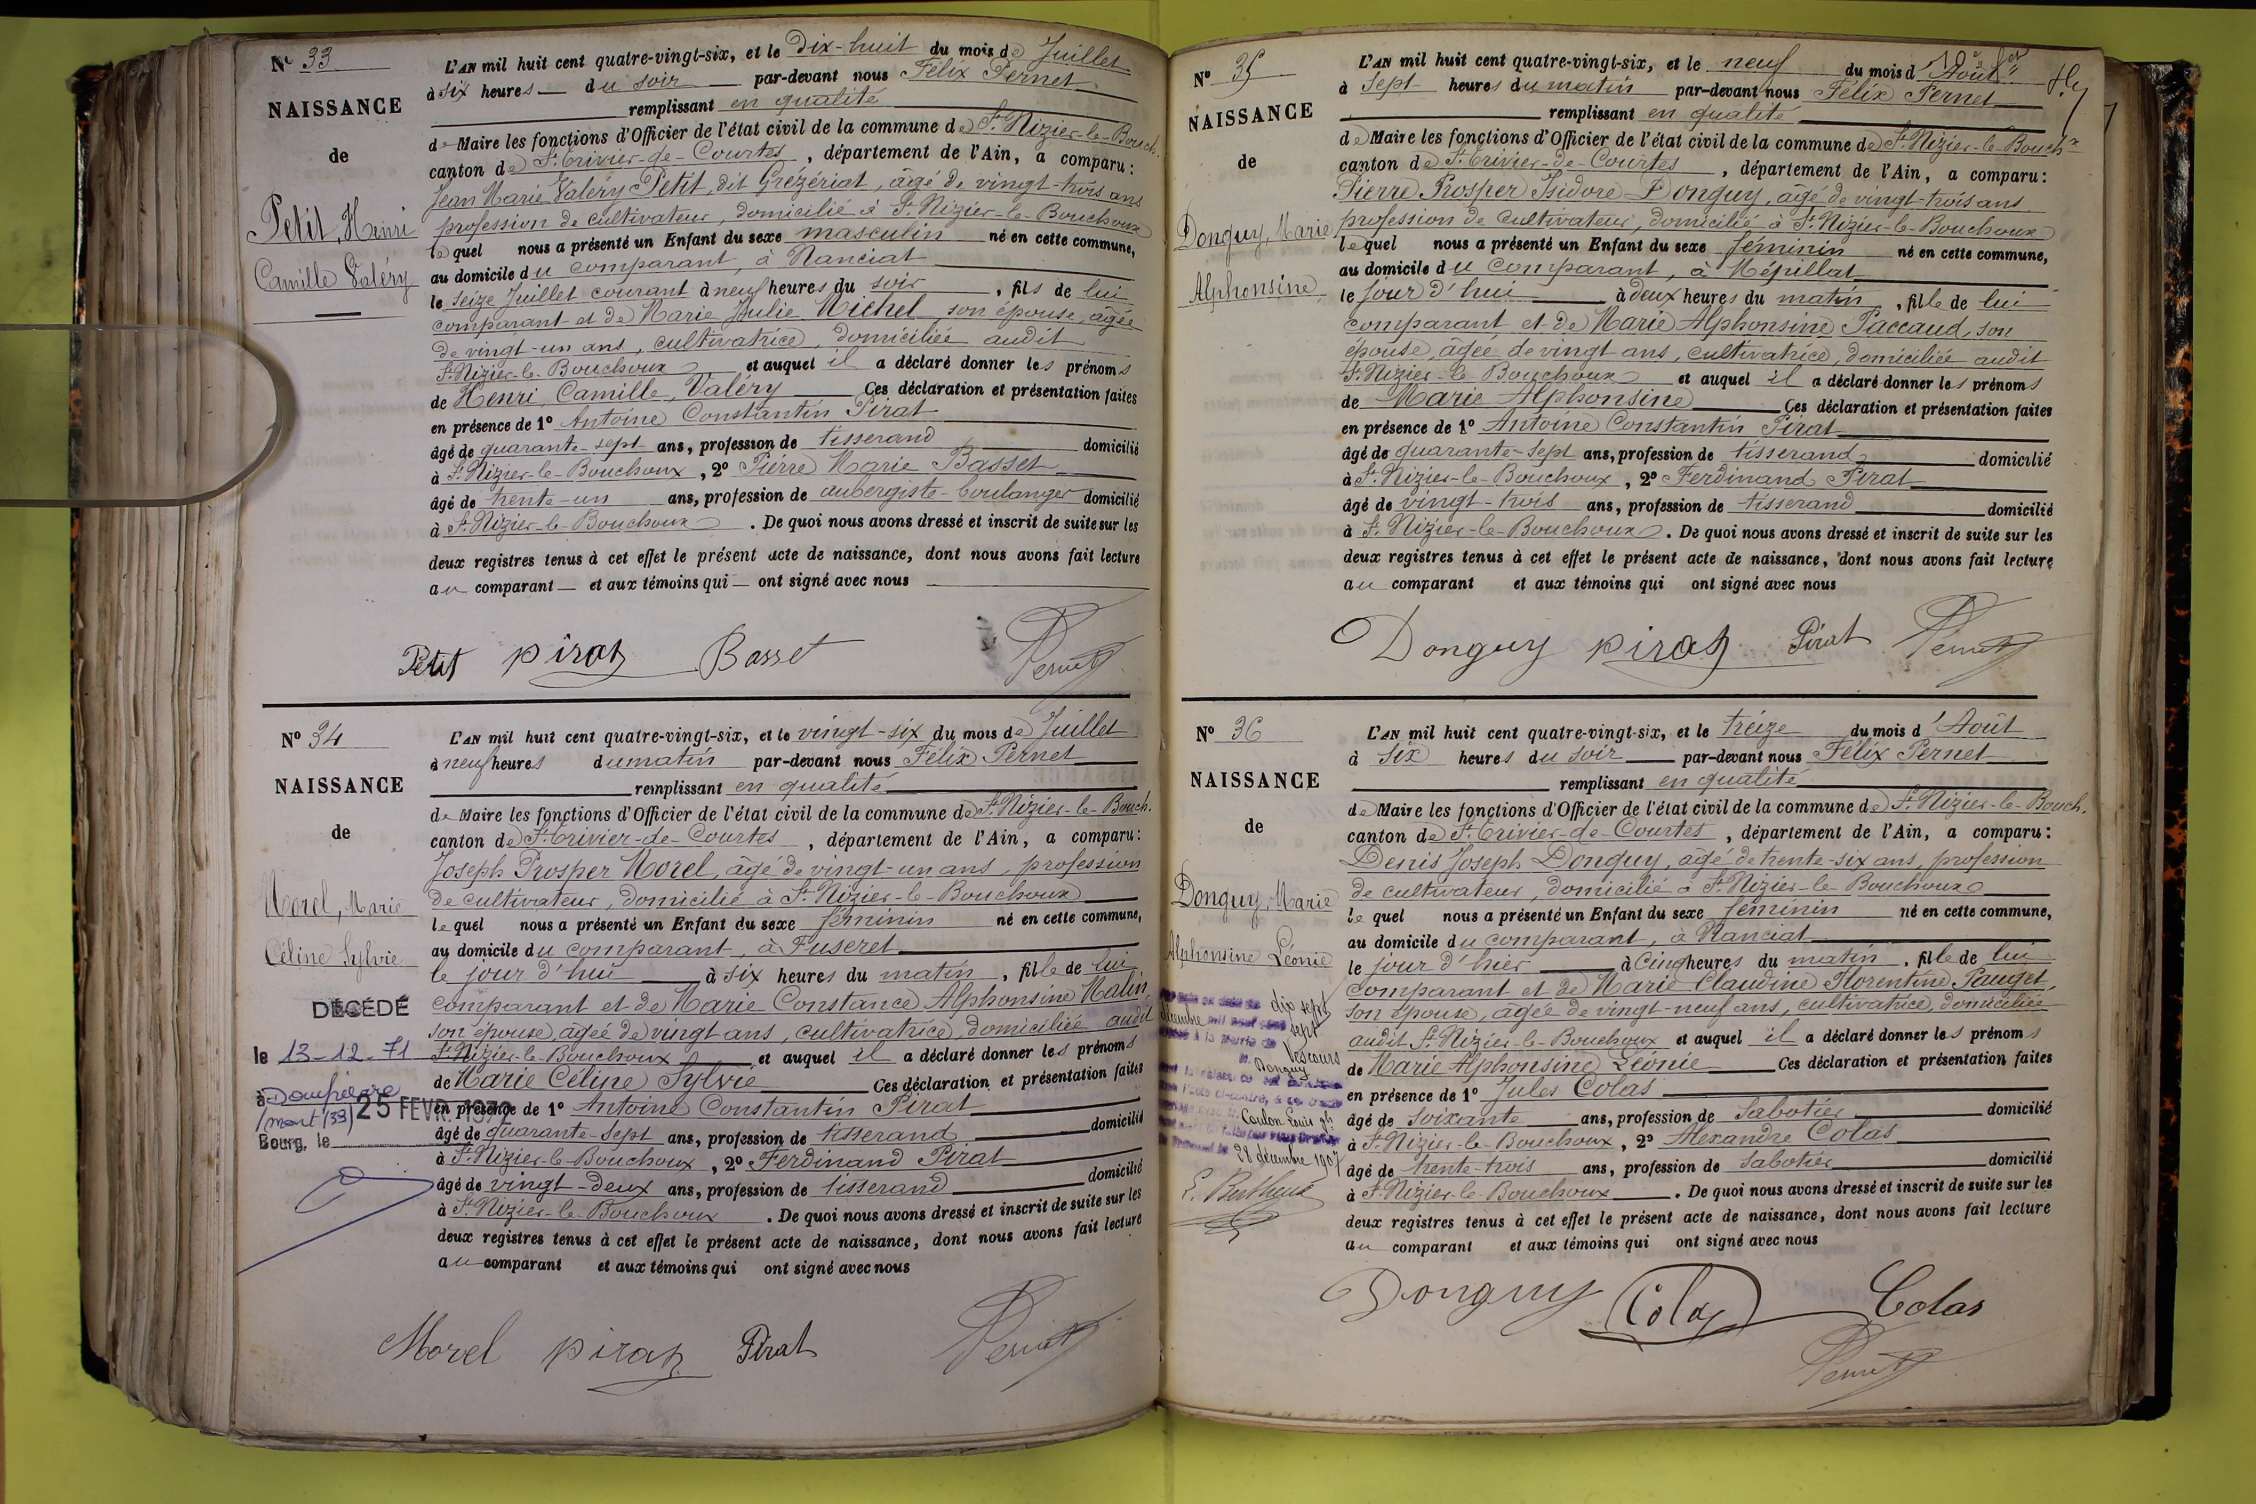 N° 33
NAISSANCE
de
Petit, Henri
Camille Valéry
L'AN mil huit cent quatre-vingt-six, et le Dix-huit du mois de Juillet
à six heures du soir par-devant nous Félix Pernet
remplissant en qualité
de Maire les fonctions d'Officier de l'état civil de la commune de St Nizier-le-Bouch.
canton de St Trivier-de-Courtes, département de l'Ain, a comparu:
Jean Marie Valéry Petit, dit Grézériat, âgé de vingt-trois ans
profession de cultivateur, domicilié à St Nizier-le-Bouchoux
lequel nous a présenté un Enfant du sexe masculin né en cette commune,
au domicile du comparant, à Nanciat
le seize Juillet courant à neuf heures du soir, fils de lui
comparant et de Marie Julie Michel son épouse, âgée
de vingt-un ans, cultivatrice, domiciliée audit
St Nizier-le-Bouchoux et auquel il a déclaré donner les prénoms
de Henri, Camille, Valéry Ces déclaration et présentation faites
en présence de 1° Antoine Constantin Pirat
âgé de quarante-sept ans, profession de tisserand domicilié
à St Nizier-le-Bouchoux, 2° Pierre Marie Basset
âgé de trente-un ans, profession de aubergiste-boulanger domicilié
à St Nizier-le-Bouchoux. De quoi nous avons dressé et inscrit de suite sur les
deux registres tenus à cet effet le présent acte de naissance, dont nous avons fait lecture
au comparant et aux témoins qui ont signé avec nous
Petit Pirat Basset Pernet
N° 34
NAISSANCE
de
Morel, Marie
Céline Sylvie
DÉCÉDÉ
le 13-12-71
à Dompierre
Bourg, le 25 FEVR. 1972
L'AN mil huit cent quatre-vingt-six, et le vingt-six du mois de Juillet
à neuf heures du matin par-devant nous Félix Pernet
remplissant en qualité
de Maire les fonctions d'Officier de l'état civil de la commune de St Nizier-le-Bouch.
canton de St Trivier-de-Courtes, département de l'Ain, a comparu:
Joseph Prosper Morel, âgé de vingt-un ans, profession
de cultivateur, domicilié à St Nizier-le-Bouchoux
lequel nous a présenté un Enfant du sexe féminin né en cette commune,
au domicile du comparant, à Fuseret
le jour d'hui à six heures du matin, fille de lui
comparant et de Marie Constance Alphonsine Malin
son épouse, âgée de vingt ans, cultivatrice, domiciliée audit
St Nizier-le-Bouchoux et auquel il a déclaré donner les prénoms
de Marie Céline Sylvie Ces déclaration et présentation faites
en présence de 1° Antoine Constantin Pirat
âgé de quarante-sept ans, profession de tisserand domicilié
à St Nizier-le-Bouchoux, 2° Ferdinand Pirat
âgé de vingt-deux ans, profession de tisserand domicilié
à St Nizier-le-Bouchoux. De quoi nous avons dressé et inscrit de suite sur les
deux registres tenus à cet effet le présent acte de naissance, dont nous avons fait lecture
au comparant et aux témoins qui ont signé avec nous
Morel Pirat Pirat Pernet
N° 35
NAISSANCE
de
Donguy, Marie
Alphonsine
L'AN mil huit cent quatre-vingt-six, et le neuf du mois d'Août
à sept heures du matin par-devant nous Félix Pernet
remplissant en qualité
de Maire les fonctions d'Officier de l'état civil de la commune de St Nizier-le-Bouchx
canton de St Trivier-de-Courtes, département de l'Ain, a comparu:
Pierre Prosper Isidore Donguy, âgé de vingt-trois ans
profession de cultivateur, domicilié à St Nizier-le-Bouchoux
lequel nous a présenté un Enfant du sexe féminin né en cette commune,
au domicile du comparant, à Mépillat
le jour d'hui à deux heures du matin, fille de lui
comparant et de Marie Alphonsine Paccaud, son
épouse, âgée de vingt ans, cultivatrice, domiciliée audit
St Nizier-le-Bouchoux et auquel il a déclaré donner les prénoms
de Marie Alphonsine Ces déclaration et présentation faites
en présence de 1° Antoine Constantin Pirat
âgé de quarante-sept ans, profession de tisserand domicilié
à St Nizier-le-Bouchoux, 2° Ferdinand Pirat
âgé de vingt-trois ans, profession de tisserand domicilié
à St Nizier-le-Bouchoux. De quoi nous avons dressé et inscrit de suite sur les
deux registres tenus à cet effet le présent acte de naissance, dont nous avons fait lecture
au comparant et aux témoins qui ont signé avec nous
Donguy Pirat Pirat Pernet
N° 36
NAISSANCE
de
Donguy, Marie
Alphonsine Léonie
dix sept
décembre mil neuf cent sept
à la mairie de Vescours
Donguy
Cordon Louis
28 décembre 1907
L'AN mil huit cent quatre-vingt-six, et le treize du mois d'Août
à six heures du soir par-devant nous Félix Pernet
remplissant en qualité
de Maire les fonctions d'Officier de l'état civil de la commune de St Nizier-le-Bouch.
canton de St Trivier-de-Courtes, département de l'Ain, a comparu:
Denis Joseph Donguy, âgé de trente-six ans, profession
de cultivateur, domicilié à St Nizier-le-Bouchoux
lequel nous a présenté un Enfant du sexe féminin né en cette commune,
au domicile du comparant, à Nanciat
le jour d'hier à cinq heures du matin, fille de lui
comparant et de Marie Claudine Florentine Pauget,
son épouse, âgée de vingt-neuf ans, cultivatrice, domiciliée
audit St Nizier-le-Bouchoux et auquel il a déclaré donner les prénoms
de Marie Alphonsine Léonie Ces déclaration et présentation faites
en présence de 1° Jules Colas
âgé de soixante ans, profession de sabotier domicilié
à St Nizier-le-Bouchoux, 2° Alexandre Colas
âgé de trente-trois ans, profession de sabotier domicilié
à St Nizier-le-Bouchoux. De quoi nous avons dressé et inscrit de suite sur les
deux registres tenus à cet effet le présent acte de naissance, dont nous avons fait lecture
au comparant et aux témoins qui ont signé avec nous
Donguy Colas Colas
Pernet